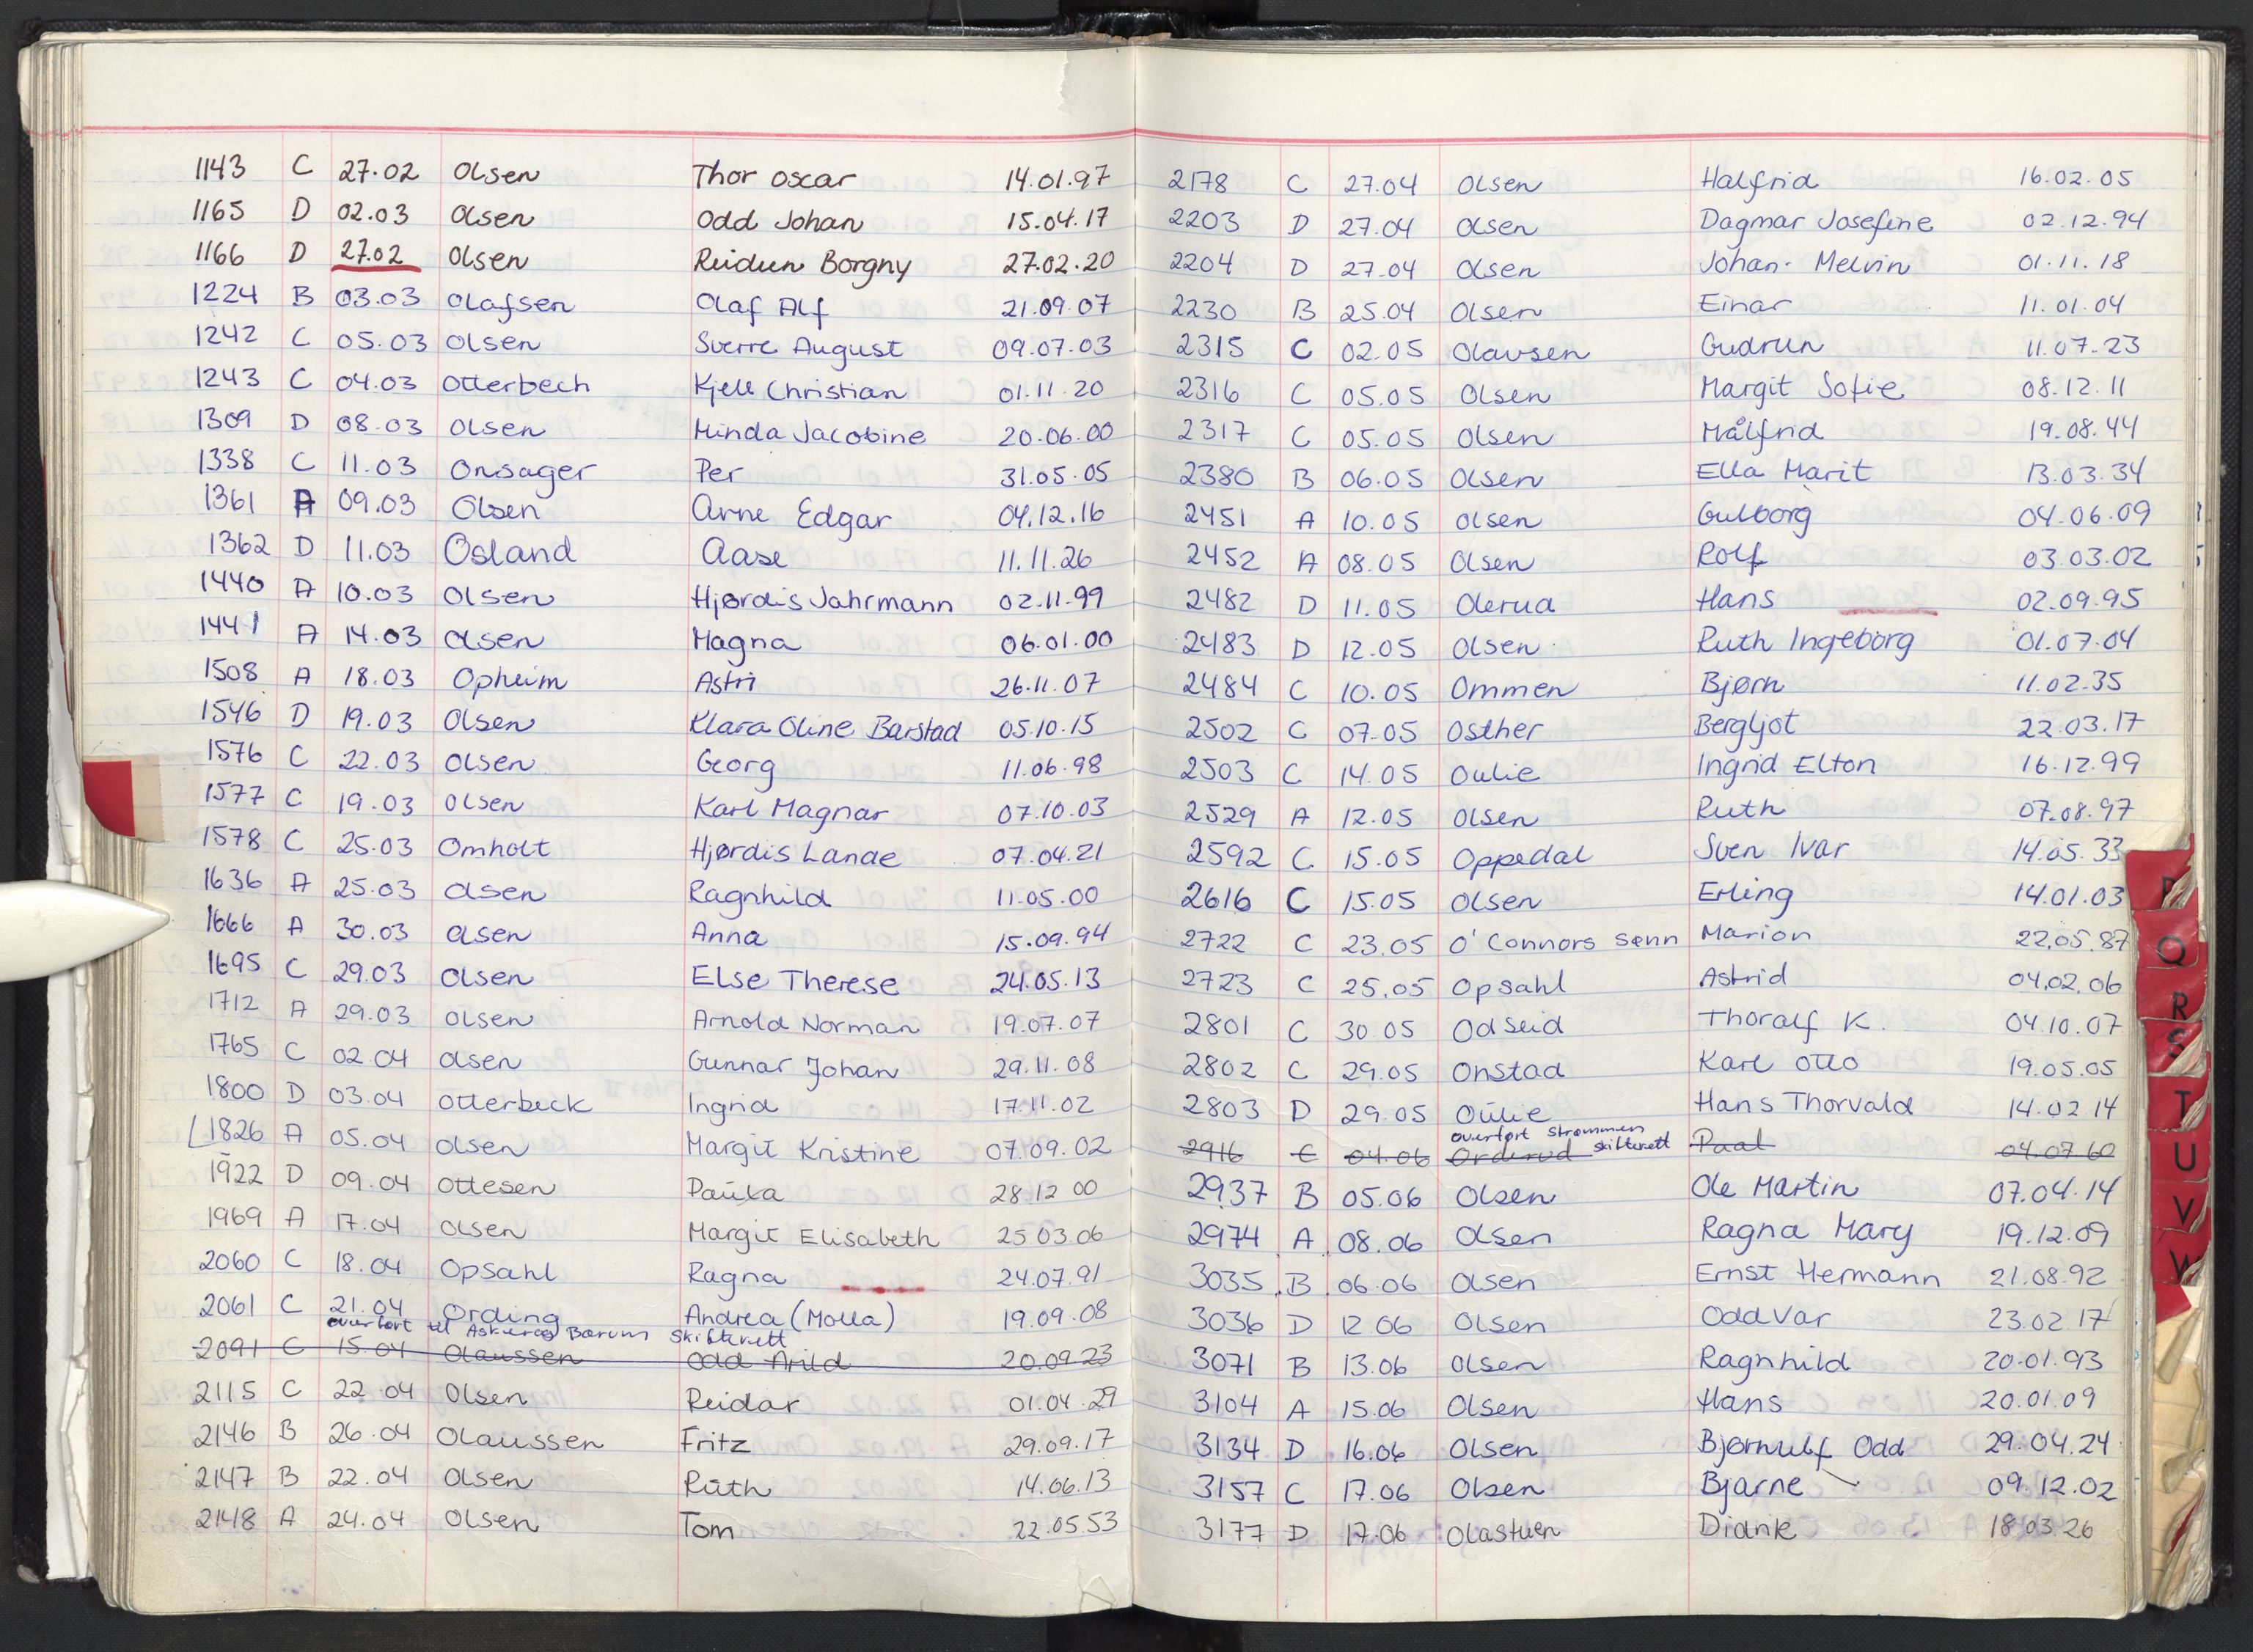 1143 C 27.02 Olsen Thor Oscar 14.01.97
1165 D 02.03 Olsen Odd Johan 15.04.17
1166 D 27.02 Olsen Reidun Borgny 27.02.20
1224 B 03.03 Olafsen Olaf Alf 21.09.07
1242 C 05.03 Olsen Sverre August 09.07.03
1243 C 04.03 Otterbech Kjell Christian 01.11.20
1309 D 08.03 Olsen Minda Jacobine 20.06.00
1338 C 11.03 Onsager Per 31.05.05
1361 A 09.03 Olsen Arne Edgar 04.12.16
1362 D 11.03 Osland Aase 11.11.26
1440 A 10.03 Olsen Hjørdis Jahrmann 02.11.99
1441 A 14.03 Olsen Magna 06.01.00
1508 A 18.03 Opheim Astri 26.11.07
1546 D 19.03 Olsen Klara Oline Barstad 05.10.15
1576 C 22.03 Olsen Georg 11.06.98
1577 C 19.03 Olsen Karl Magnar 07.10.03
1578 C 25.03 Omholt Hjørdis Lande 07.04.21
1636 A 25.03 Olsen Ragnhild 11.05.00
1666 A 30.03 Olsen Anna 15.09.94
1695 C 29.03 Olsen Else Therese 24.05.13
1712 A 29.03 Olsen Arnold Norman 19.07.07
1765 C 02.04 Olsen Gunnar Johan 29.11.08
1800 D 03.04 Otterbeck Ingrid 17.11.02
1826 A 05.04 Olsen Margit Kristine 07.09.02
1922 D 09.04 Ottesen Paula 28.12 00
1969 A 17.04 Olsen Margit Elisabeth 25.03.06
2060 C 18.04 Opsahl Ragna 24.07.91
2061 C 21.04 Ording Andrea (Molla) 19.09.08
overført til Asker og Bærum Skifterett
2091 C 15.04 Olaussen Odd Arild 20.09.23
2115 C 22.04 Olsen Reidar 01.04.29
2146 B 26.04 Olaussen Fritz 29.09.17
2147 B 22.04 Olsen Ruth 14.06.13
2148 A 24.04 Olsen Tom 22.05.53
2178 C 27.04 Olsen Halfrid 16.02.05
2203 D 27.04 Olsen Dagmar Josefine 02.12.94
2204 D 27.04 Olsen Johan Melvin 01.11.18
2230 B 25.04 Olsen Einar 11.01.04
2315 C 02.05 Olavsen Gudrun 11.07.23
2316 C 05.05 Olsen Margit Sofie 08.12.11
2317 C 05.05 Olsen Målfrid 19.08.44
2380 B 06.05 Olsen Ella Marit 13.03.34
2451 A 10.05 Olsen Gulborg 04.06.09
2452 A 08.05 Olsen Rolf 03.03.02
2482 D 11.05 Olerud Hans 02.09.95
2483 D 12.05 Olsen Ruth Ingeborg 01.07.04
2484 C 10.05 Ommen Bjørn 11.02.35
2502 C 07.05 Osther Bergljot 22.03.17
2503 C 14.05 Oulie Ingrid Elton 16.12.99
2529 A 12.05 Olsen Ruth 07.08.97
2592 C 15.05 Oppedal Sven Ivar 14.05.33
2616 C 15.05 Olsen Erling 14.01.03
2722 C 23.05 O'Connors sønn Marion 22.05.87
2723 C 25.05 Opsahl Astrid 04.02.06
2801 C 30.05 Odseid Thoralf K. 04.10.07
2802 C 29.05 Onstad Karl Otto 19.05.05
2803 D 29.05 Oulie Hans Thorvald 14.02 14
overført Strømmen skifterett
2916 C 04.06 Orderud Paal 04.07.60
2937 B 05.06 Olsen Ole Martin 07.04.14
2974 A 08.06 Olsen Ragna Mary 19.12.09
3035 B 06.06 Olsen Ernst Hermann 21.08.92
3036 D 12 06 Olsen Oddvar 23.02.17
3071 B 13.06 Olsen Ragnhild 20.01.93
3104 A 15.06 Olsen Hans 20.01.09
3134 D 16.06 Olsen Bjørnulf Odd 29.04.24
3157 C 17.06 Olsen Bjarne 09.12.02
3177 D 17.06 Olastuen 18.03.26
Q
R
S
T
U
V
W